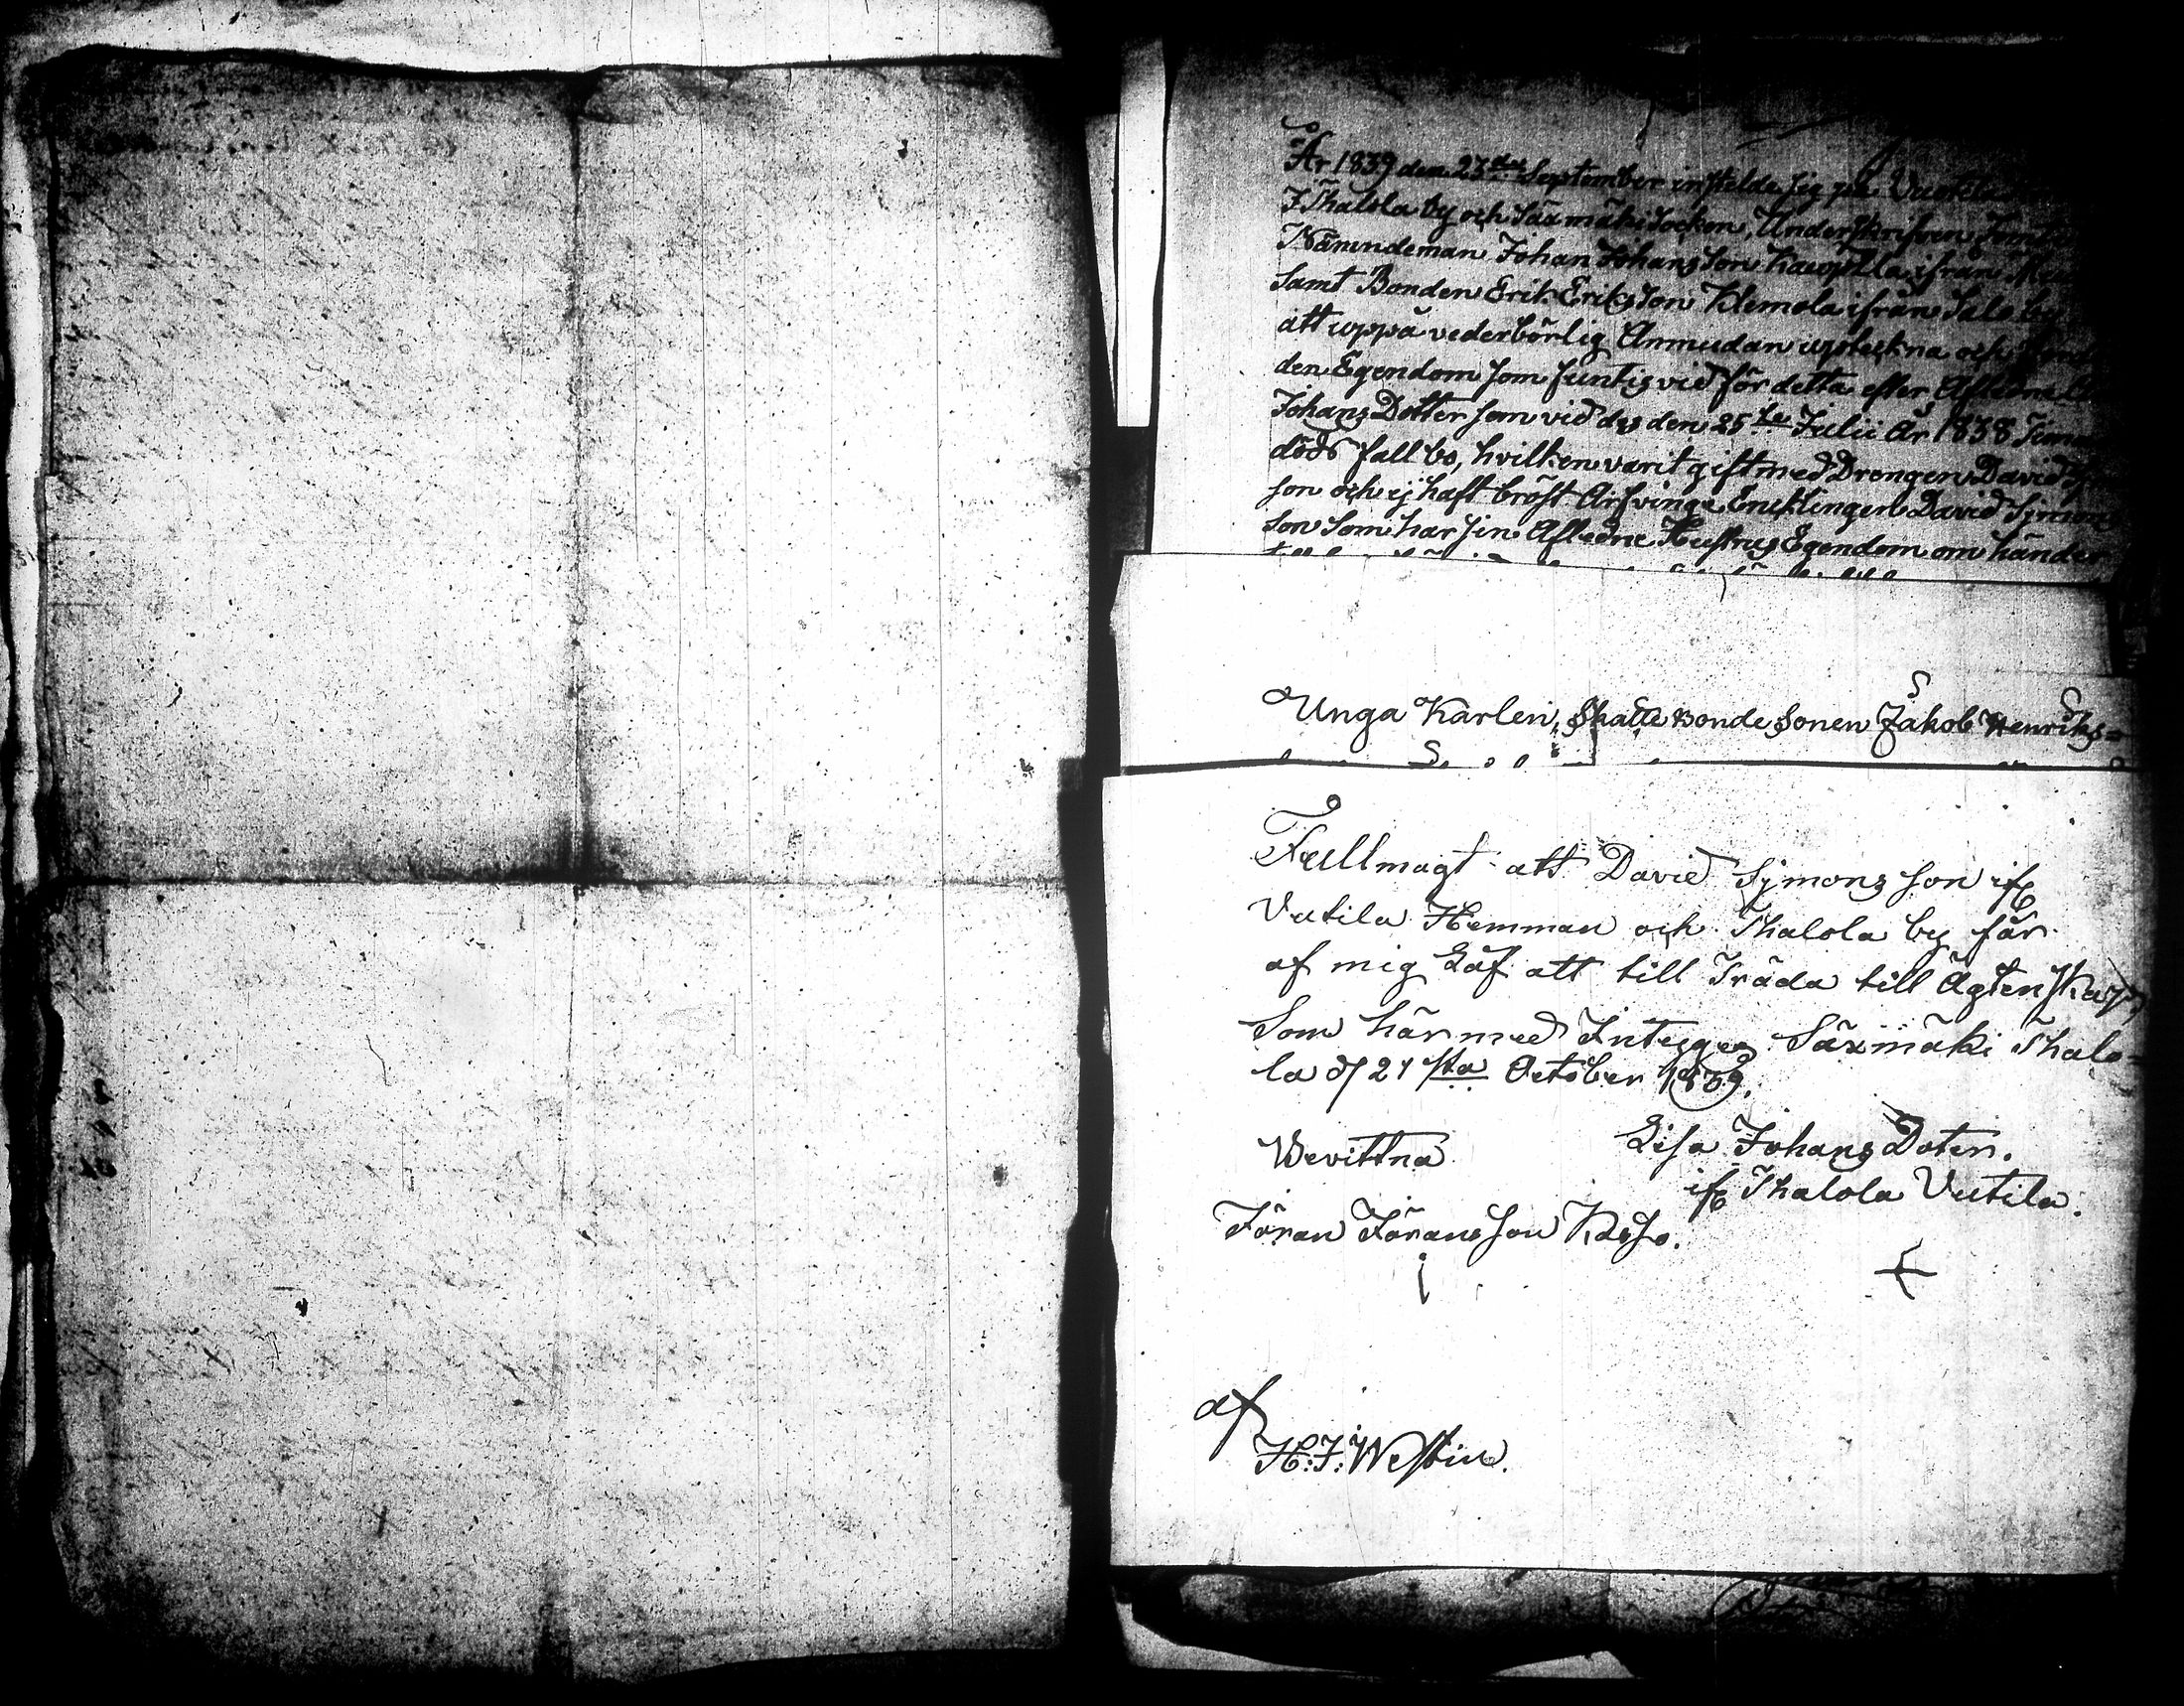 År 1839 den 23die September instelde sig på
I Thalola by och Säxmäki Socken, Underskrifven
Nämndeman Johan Johansson Kauppila ifrån
samt Bonden Erik Eriksson Klemola ifrån Salo by
att uppå vederbörlig Anmudan uptekna och
den Egendom som funtis vid för detta efter Aflidne
Johans Dotter som vid des den 25te Julii År 1838 Timade
döds fall bo, hvilken varit gift med Drengen David
son och ej haft bröst Arfvinge, Enklingen David Symons
son som har sin Aflednе Hustrus Egendom om händer
Unga Karlen, Skatte Bonde Sonen Jakob Henriks=
Fullmagt att David Symons son ifr
Vutila Hemman och Thalola by får
af mig Låf att till Träda till Ägtenskap,
Som härmed Intygas Säxmäki Thalo=
la d 21sta October 1839.
Bevittna
Lisa Johans Doter.
ifr Thalola Vutila.
Jöran Jöransson
af
H: J: Westin.